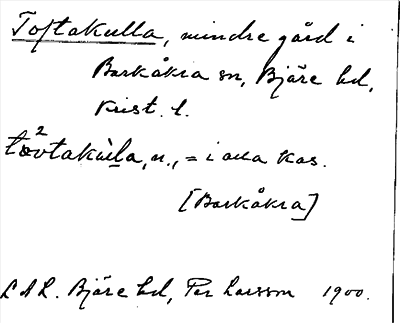 Toftakulla, mindre gård i
Barkåkra sn, Bjäre hd,
Krist. l.
tòvtakùla, n., = i alla kas.
[Barkåkra]
L A L. Bjäre hd, Per Larsson 1900.